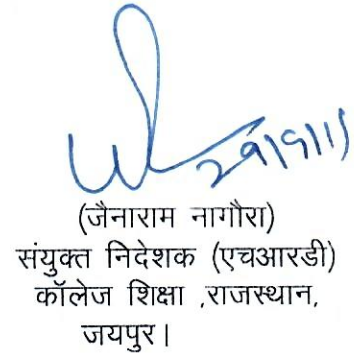 29/9/15
(जैनाराम नागौरा)
संयुक्त निदेशक (एचआरडी)
कॉलेज शिक्षा ,राजस्थान,
जयपुर।